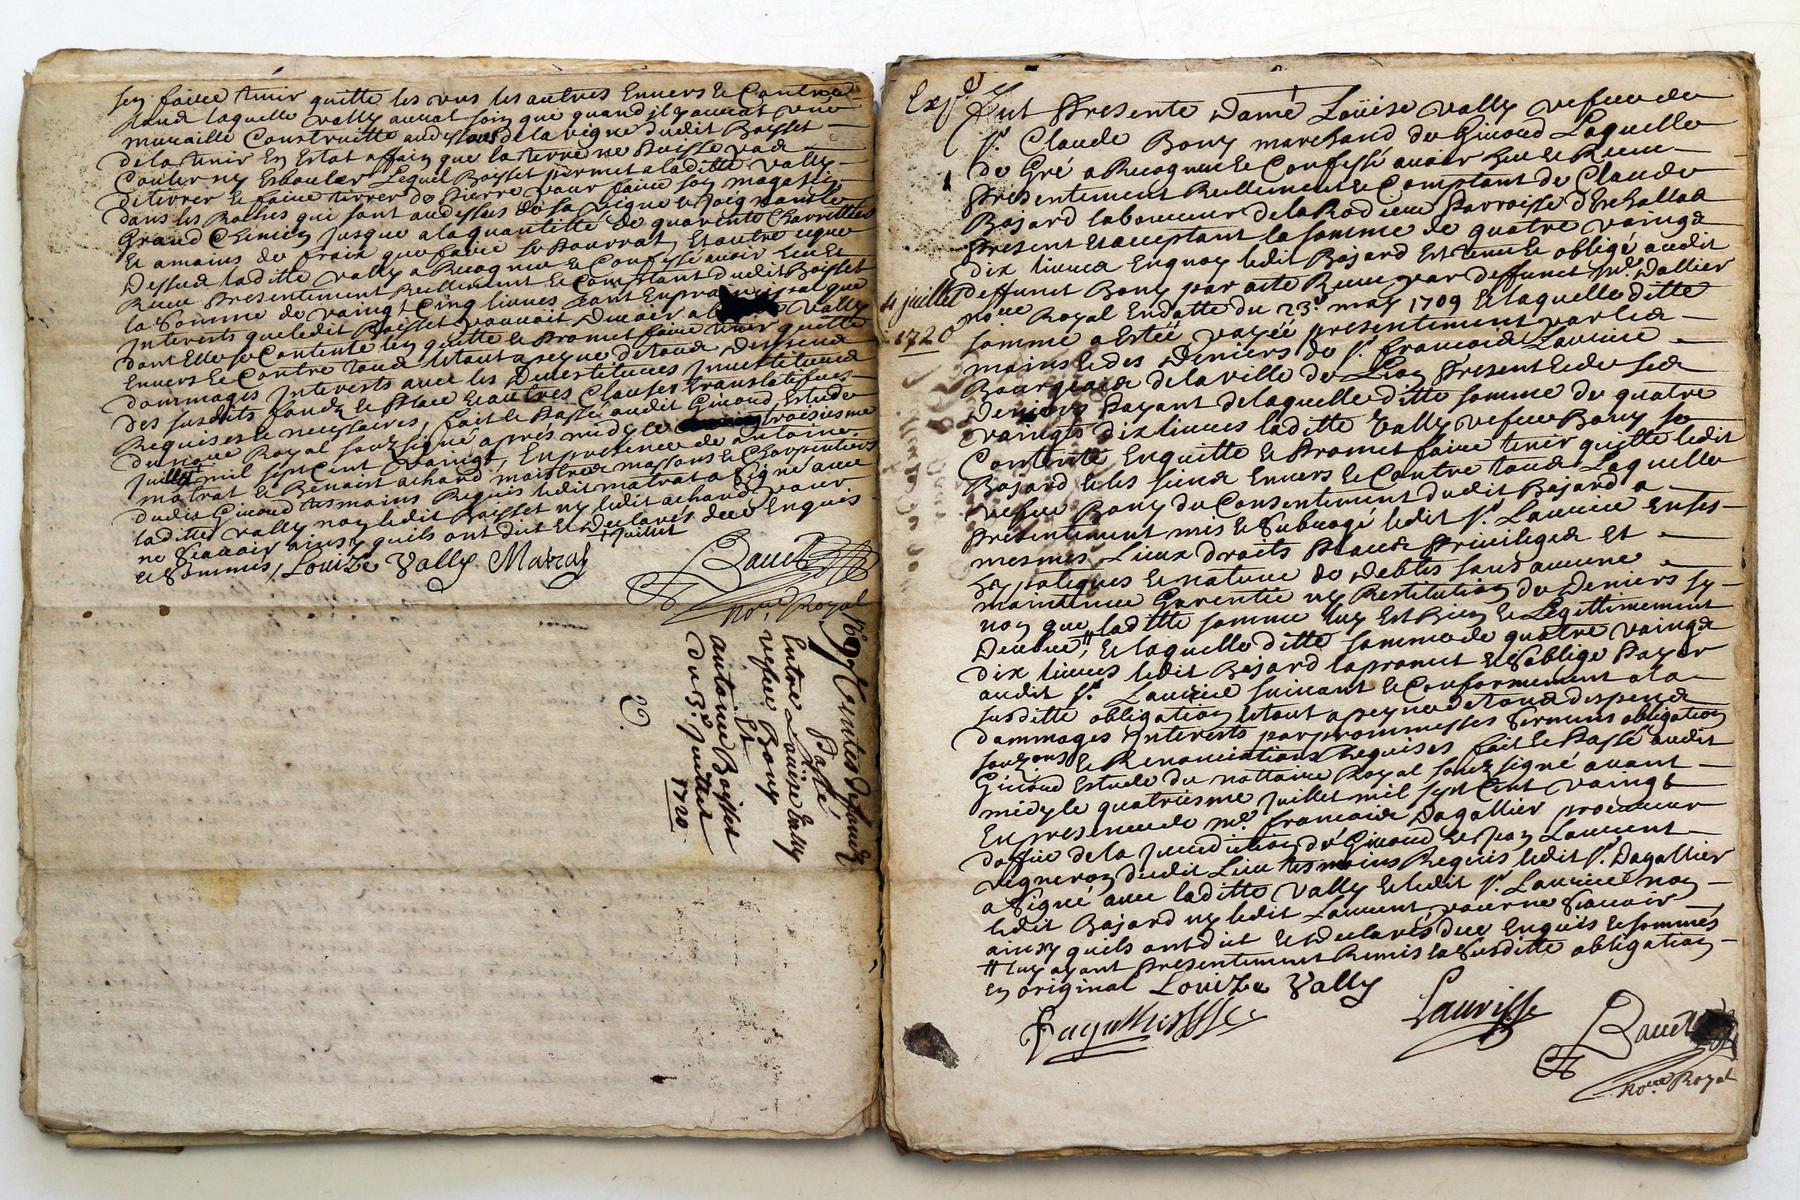 sen faire tenir quitte les uns les autres Envers Et Contre
tous laquelle vally aura soin que quand il y aura une
muraille Construitte audessous de la vigne dudit Boysset
de la tenir En Estat affain que la terre ne Puisse pas
Couler ny Esbouler Lequel Boysset permet a laditte vally
de tirrer & faire tirrer de Pierre pour faire son magazin
dans les Roches qui sont audessus de sa vigne & joignant le
Grand Chemin jusque a la quantitté de quarente Charrettées
Et amains de fraix que faire Se Pourrat, Et autre ce que
Dessus laditte vally a Recognu & Confessé avoir heu Et
Receu Presentement Reellement & Comptant dudit Boysset
la Somme de vaingt Cinq livres tant En principal que
Interests que ledit Boysset pouvait Devoir a la vally
dont Elle se Contente len quitte & Promet faire tenir quitte
Envers & Contre tous le tout a peyne de tous Despens
dammages Interests avec les Devestitures Investitures
des susdits fonds & Place & autres Clauses translatifues
Requises & necessaires, fait & Passé audit Givord Estude
du no.re Royal souzsigné aprés midy le troisiesme
juillet mil sept Cent vaingt, En presence de antoine
matrat & Benoist achard maistres massons & Charpentiers
dudit Givord tesmoins Requis ledit matrat a Signé avec
laditte vally non ledit Boysset ny ledit achard pour
ne Scavoir ainsy quils ont dit Et Declarés deue Enquis
& Sommés, Louize Vally Matrat
+ juillet
Bauet
no.re Royal
Ventes de fonds
Passé,
Entre Louise Vally
vefue Bony
Et
antoine Boysset
du 3.e juillet
1720
Exp.é
Fut Presente Dame Loüise vally vefue de
S.r Claude Bony marchand de Givord Laquelle
de Gré a Recognu & Confessé avoir heu & Receu
Presentement Reellement & Comptant de Claude
Bajard laboureur de la Rodiere Parroisse d'Echallas
Present Et acceptant la somme de quatre vaingts
dix livres En quoy ledit Bajard Est tenu & obligé audit
deffunct Bony par acte Receu par deffunct M.e Dallier
4 juillet
1720
no.re Royal En datte du 23.e may 1709 & laquelle ditte
somme a Estée payée presentement par les
mains & des Deniers de S.r francois Laurice
Bourgeois de la ville de Lion Present & de ses
deniers Payant de laquelle ditte somme de quatre
vaingts dix livres laditte Vally vefue Bony se
Contente En quitte & Promet faire tenir quitte ledit
Bajard & les siens Envers & Contre tous Laquelle
vefue Bony du Consentement dudit Bajard a
Presentement mis & Subrogé ledit S.r Laurice En ses
mesmes Lieux droits Places Privileges Et
hypoteques & nature de debtes sans aucune
maintenue Garentie ny Restitution de Deniers sy
non que laditte somme luy Est Bien & Legittimement
Deubue, # Et laquelle ditte somme de quatre vaingts
dix livres ledit Bajard la promet & S'oblige Payer
audit S.r Laurice suivant & Conformement a la
susditte obligation le tout a peyne de tous despens
dammages Interests par prommesses Sermens obligation
& Renonciations Requises fait & Passé audit
Givord Estude du nottaire Royal souz signé avant
midy le quatriesme juillet mil sept Cent vaingt
En presence de m.e francois Dagallier procureur
d'office de la jurediction de Givord & Jean Laurent
vigneron dudit Lieu tesmoins Requis ledit S.r Dagallier
a Signé avec laditte Vally & ledit S.r Laurice non
ledit Bajard ny ledit Laurent pour ne Scavoir
ainsy quils ont dit & Declarés deue Enquis & sommés
# luy ayant Presentement Remis la Susditte obligation
En original Louize Vally
Dagallier Laurisse Bauet
no.re Royal